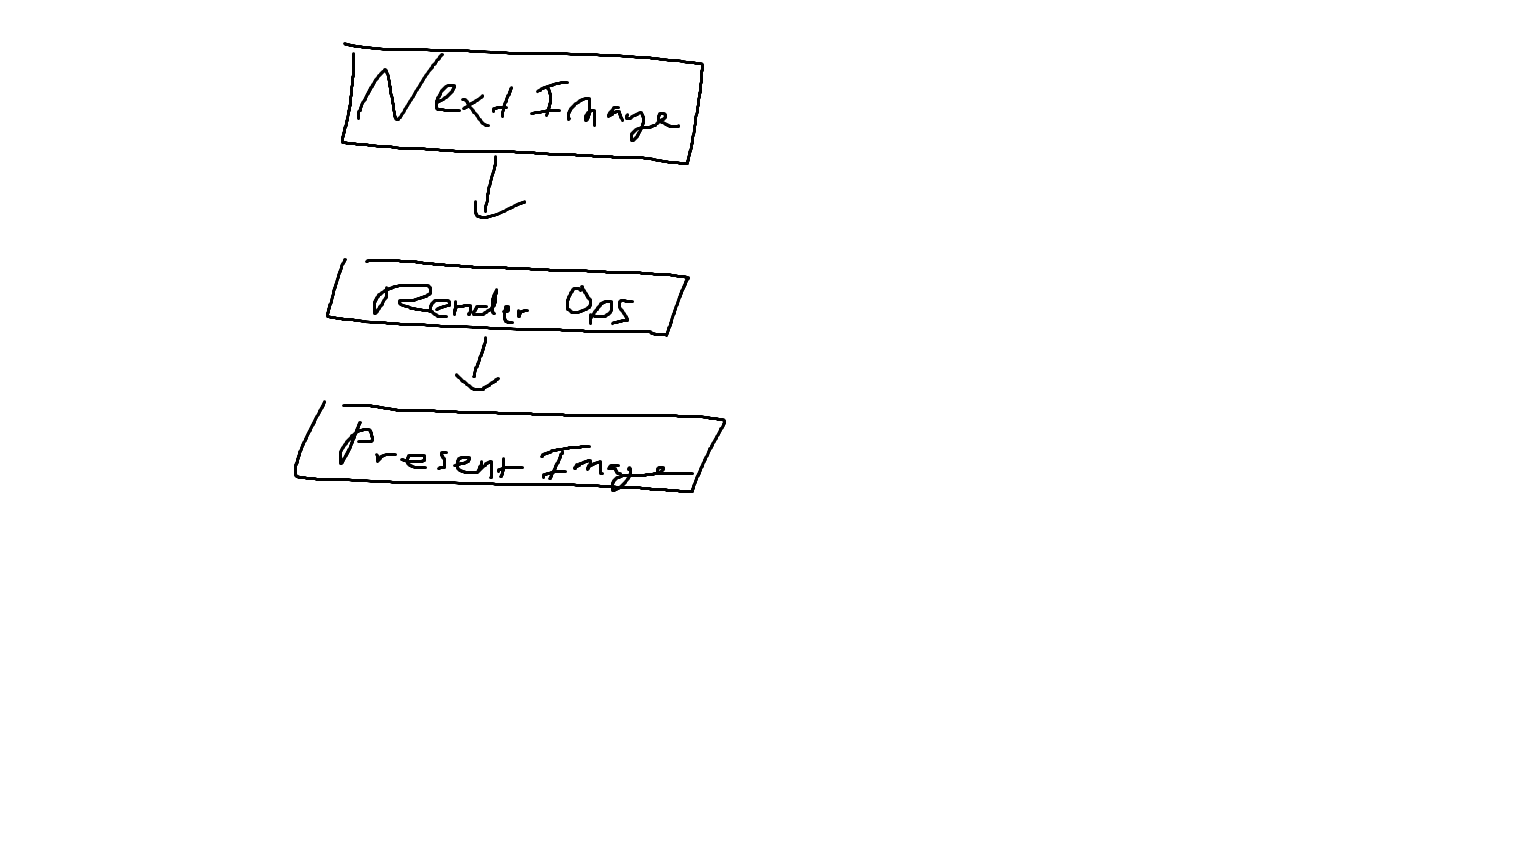 Next Image
Render Ops
Present Image